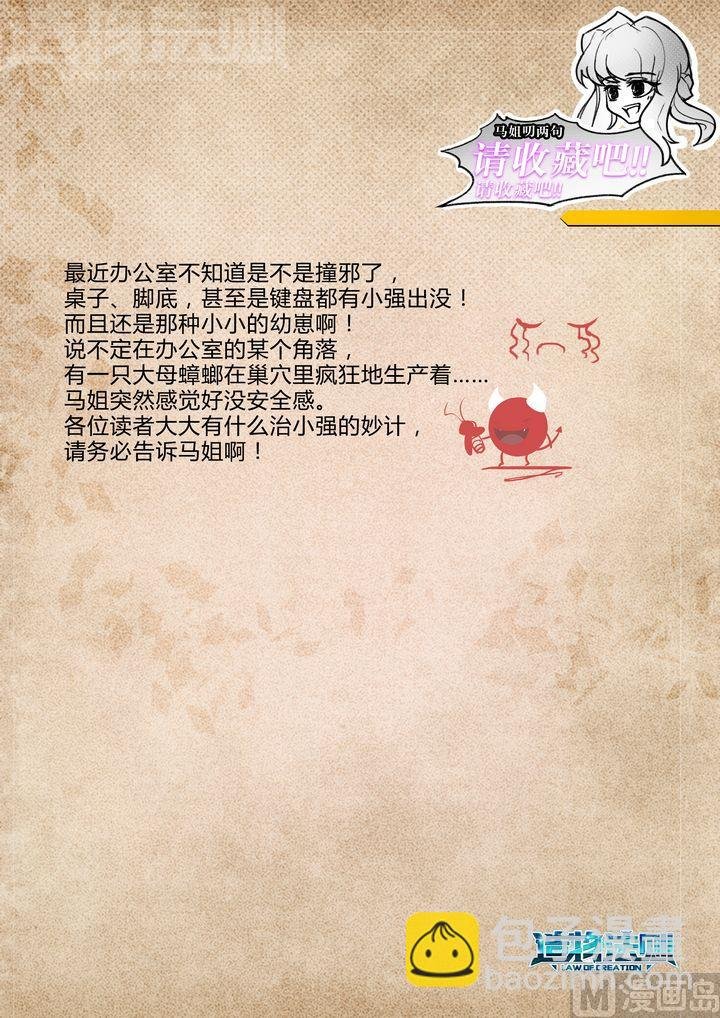 造物法则
马姐叨两句
请收藏吧!!
请收藏吧!!
最近办公室不知道是不是撞邪了，
桌子、脚底，甚至是键盘都有小强出没！
而且还是那种小小的幼崽啊！
说不定在办公室的某个角落，
有一只大母蟑螂在巢穴里疯狂地生产着……
马姐突然感觉好没安全感。
各位读者大大有什么治小强的妙计，
请务必告诉马姐啊！
包子漫畫
baozimh.com
造物法则
LAW OF CREATION
M漫画岛